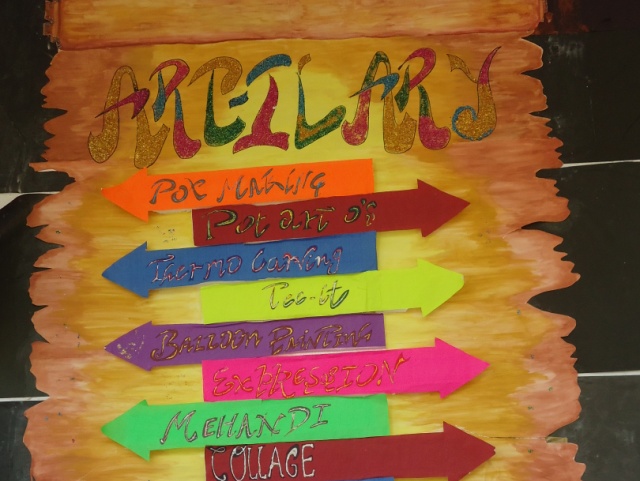 ART-ILARY
POT MAKING
Pot art
Thermo Carving
Tee-it
BALLOON PAINTING
EXPRESSION
MEHANDI
COLLAGE